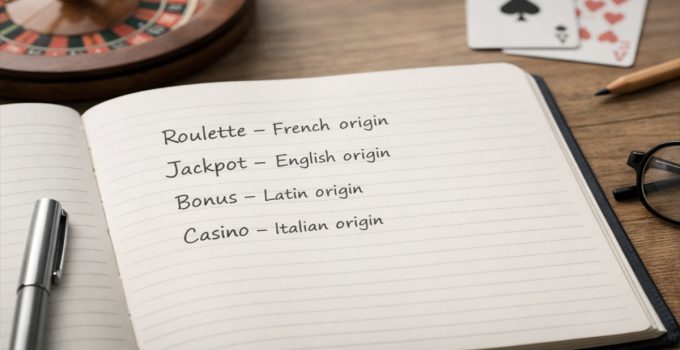 Roulette – French origin
Jackpot – English origin
Bonus – Latin origin
Casino – Italian origin